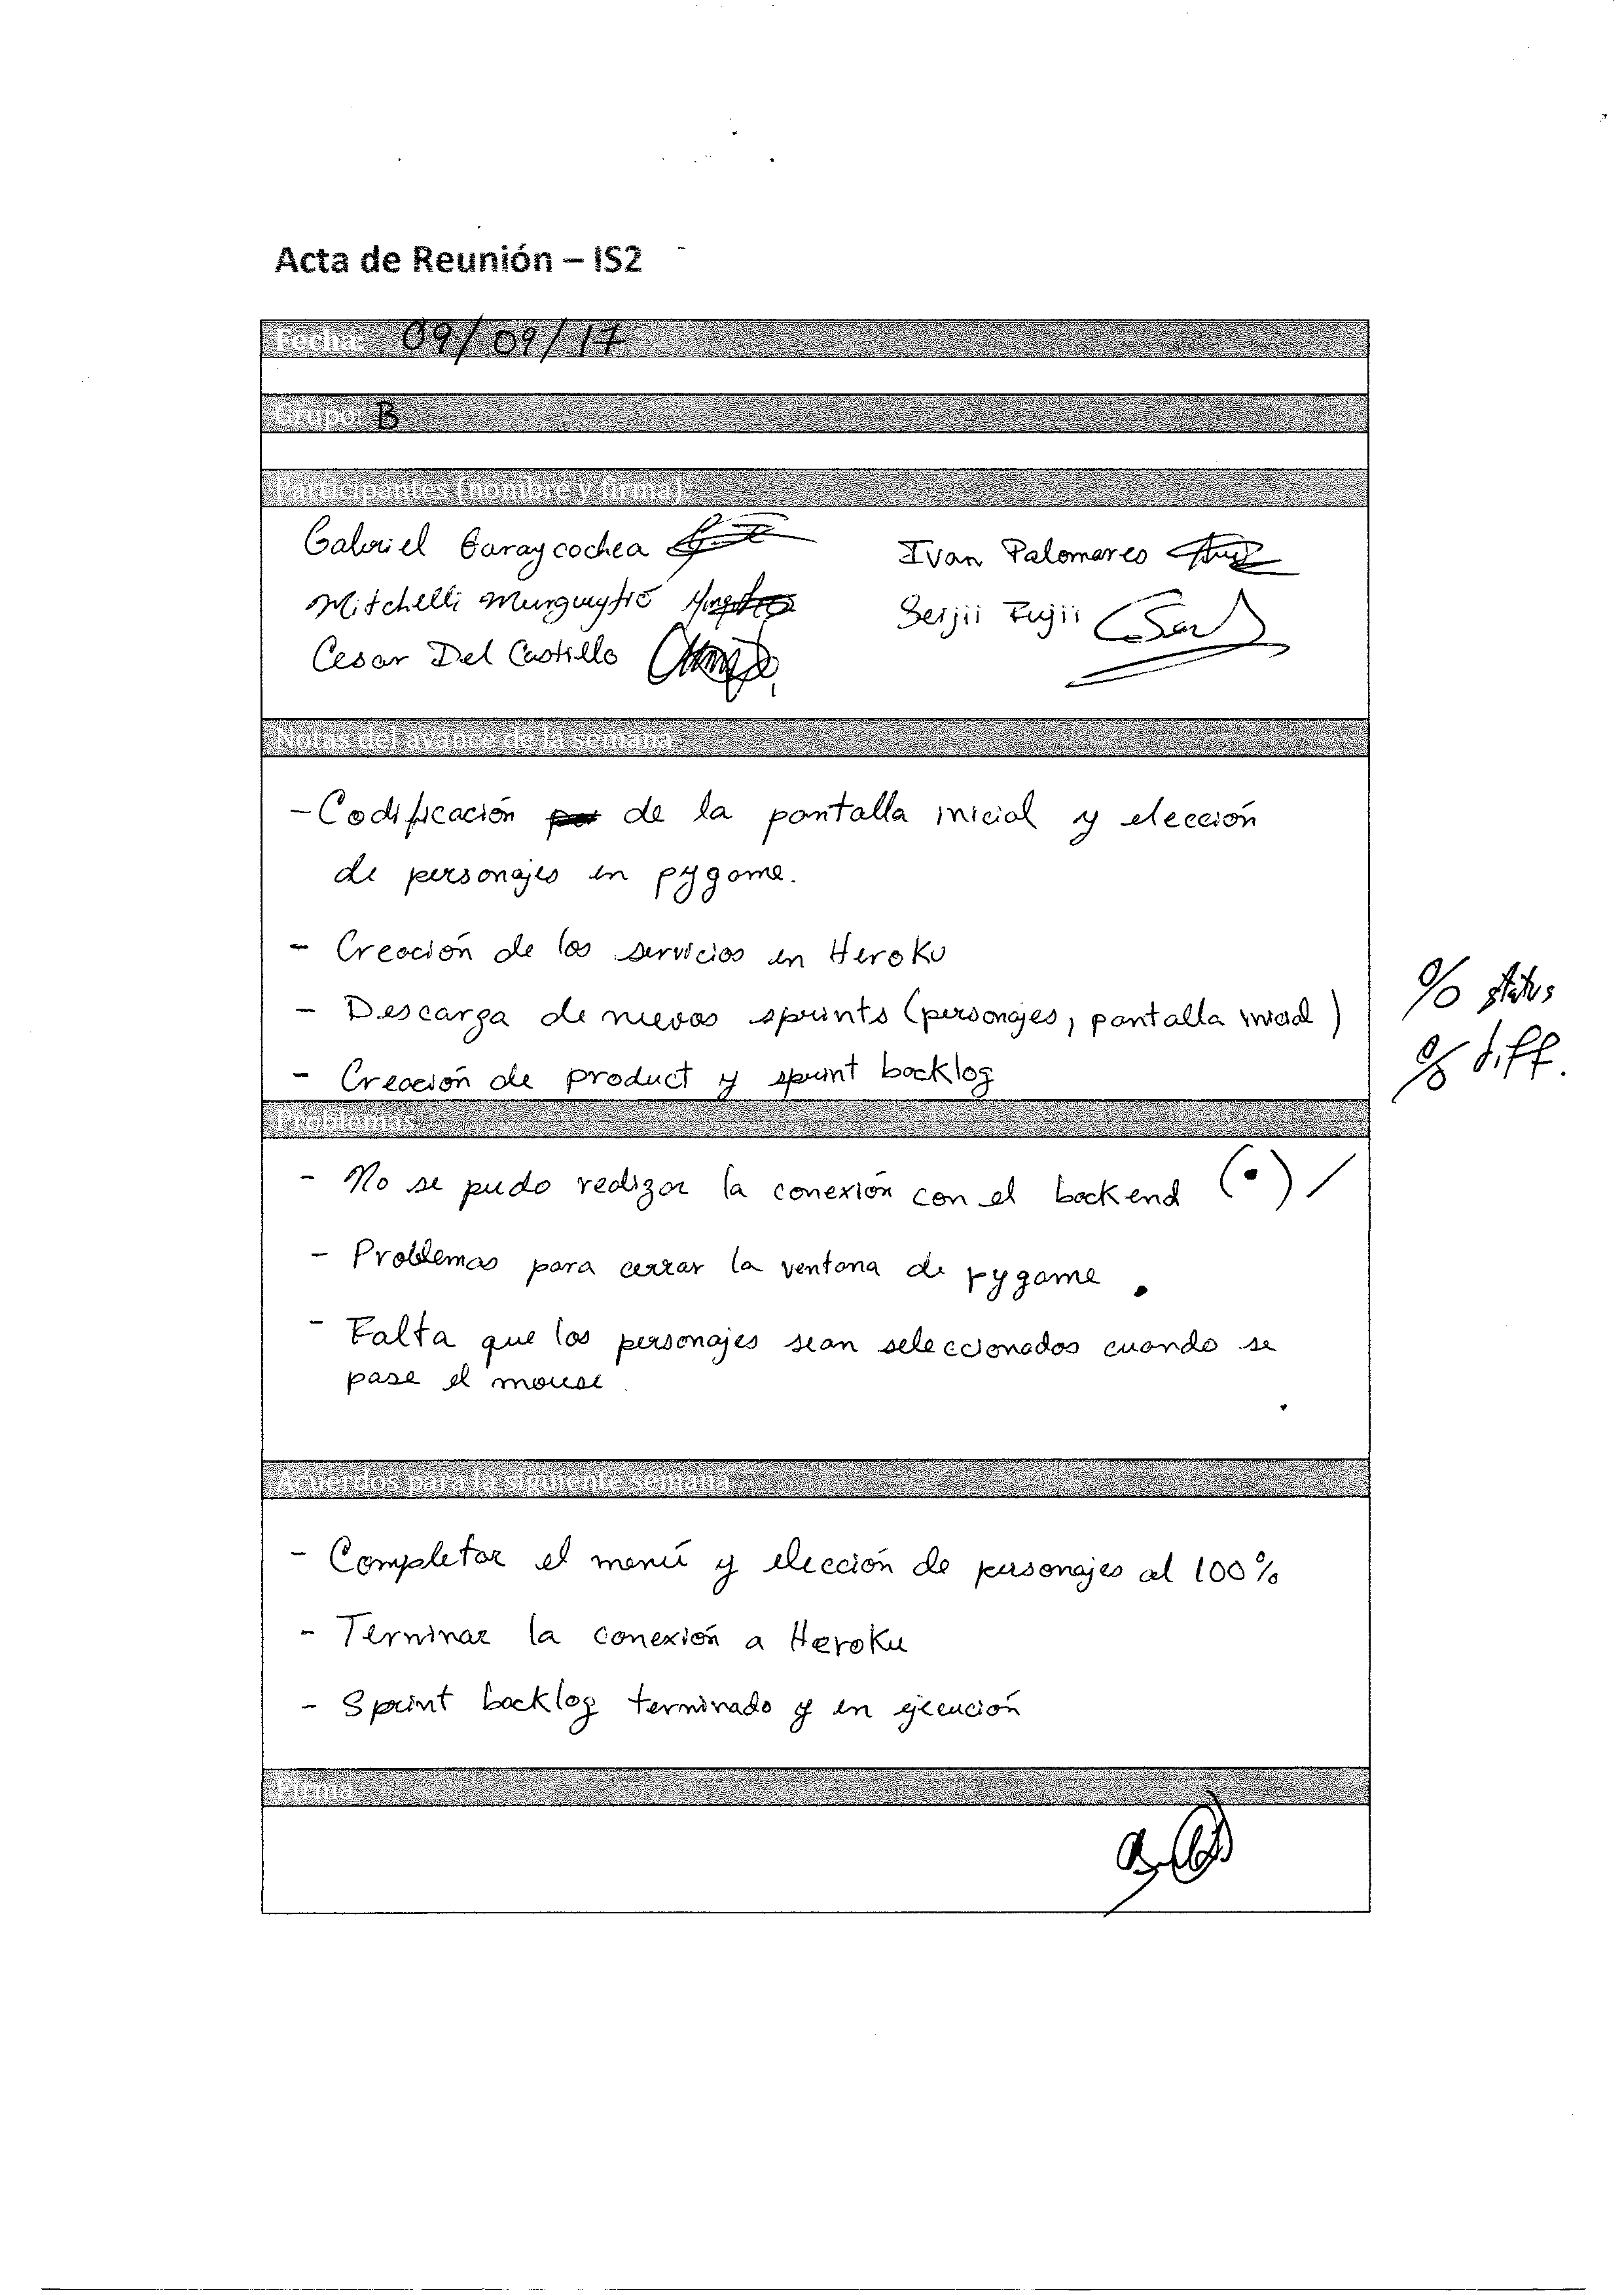 Acta de Reunión – IS2
Fecha: 09/09/17
Grupo: B
Participantes (nombre y firma)
Gabriel Garaycochea
Ivan Palomares
Mitchelli
Seijii Fujii
Cesar Del Castillo
Notas del avance de la semana
- Codificación de la pantalla inicial y elección
de personajes en pygame.
- Creación de los servicios en Heroku
- Descarga de nuevos sprints (personajes, pantalla inicial)
% status
- Creación de product y sprint backlog
% diff.
Problemas
- No se pudo realizar la conexión con el backend (•) /
- Problemas para cerrar la ventana de pygame
- Falta que los personajes sean seleccionados cuando se
pase el mouse.
Acuerdos para la siguiente semana
- Completar el menú y elección de personajes al 100%
- Terminar la conexión a Heroku
- Sprint backlog terminado y en ejecución
Firma